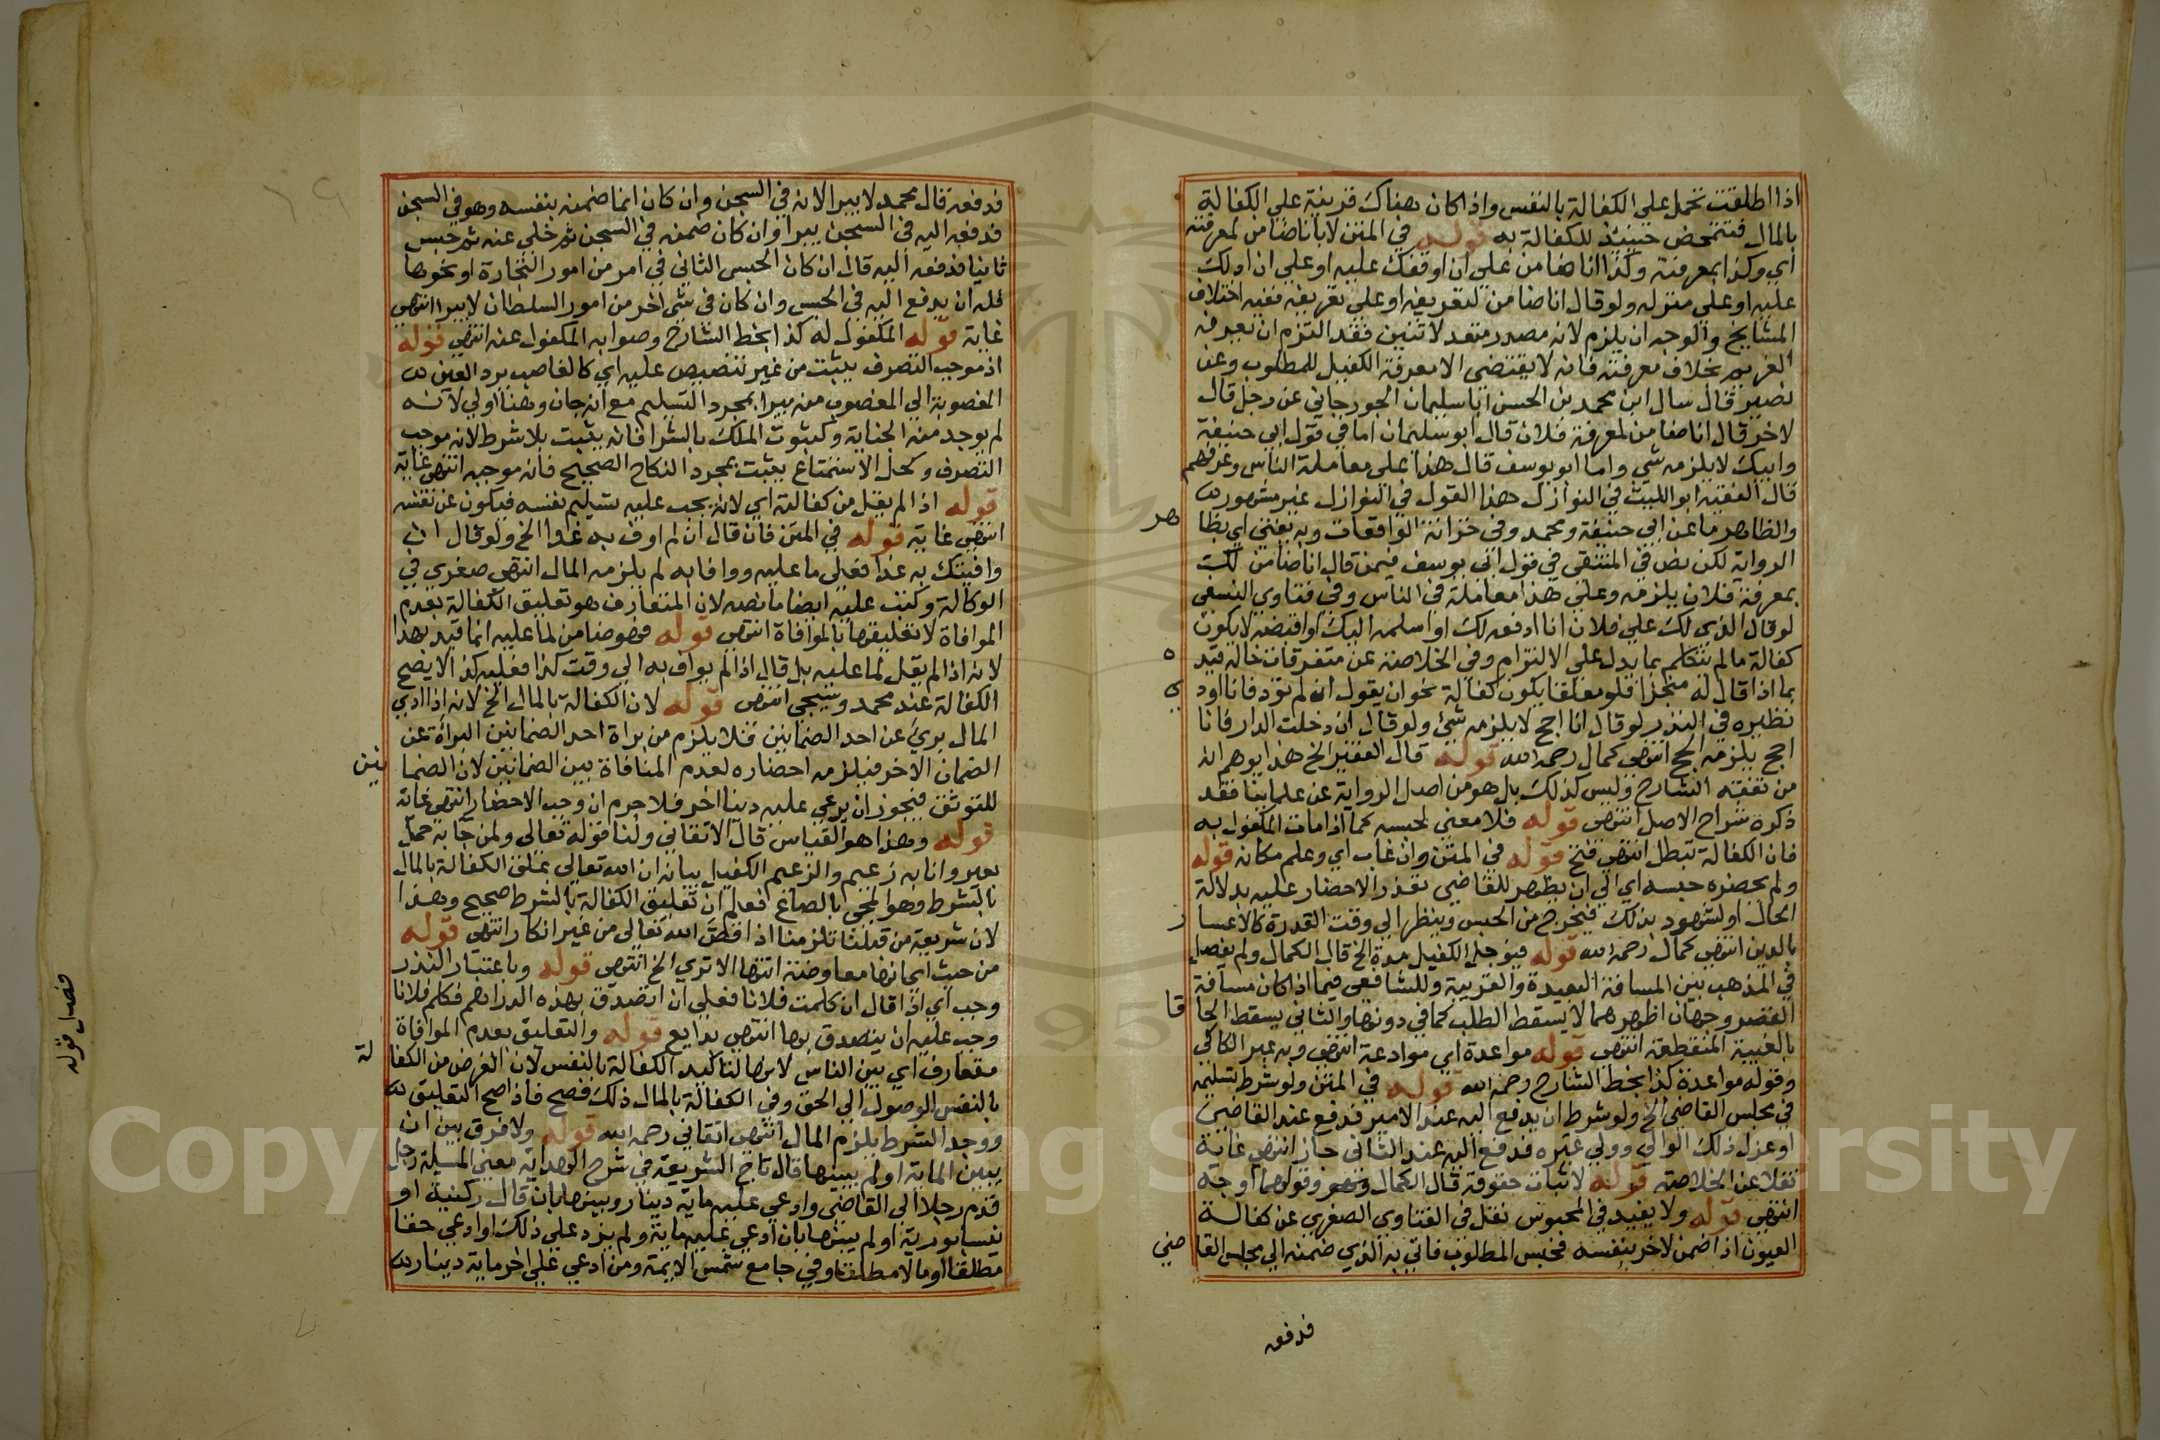 اذا اطلقت تحمل علي الكفالة بالنفس واذا كان هناك قرينة علي الكفالة
بالمال فتتمحض حينئذ للكفالة به قوله في المتن لا بانا ضامن لمعرفته
اي وكذا بمعرفته وكذا انا ضامن علي ان اوقفك عليه او علي ان ادلك
عليه او علي منزله ولو قال انا ضامن لتعريفه او علي تعريفه ففيه اختلاف
المشايخ والوجه ان يلزم لانه مصدر متعد لاثنين فقد التزم ان يعرفه
الغريم بخلاف معرفته فانه لا يقتضي الا معرفة الكفيل للمطلوب وعن
نصير قال سال ابن محمد بن الحسن ابا سليمان الجورجاني عن رجل قال
لاخر قال انا ضامن لمعرفة فلان قال ابو سليمان اما في قول ابي حنيفة
وابيك لا يلزمه شي واما ابو يوسف قال هذا علي معاملة الناس وعرفهم
قال الفقيه ابو الليث في النوازل هذا القول في النوازل غير مشهور
والظاهر ما عن ابي حنيفة ومحمد وفي خزانة الواقعات وبه يفتي اي بظا
هر
الرواية لكن نص في المنتقي في قول ابي يوسف فيمن قال انا ضامن لك
بمعرفة فلان يلزمه وعلي هذا معاملة في الناس وفي فتاوي النسفي
لو قال الذي لك علي فلان انا ادفعه لك او اسلمه اليك او اقبضه لا يكون
كفالة ما لم يتكلم بما يدل علي الالتزام وفي الخلاصة عن متفرقات خاله قيد
ه
بما اذا قال له منجزا فلو معلقا يكون كفالة نحو ان يقول ان لم تود فانا اود
ي
نظيره في النذر لو قال انا احج لا يلزمه شئ ولو قال ان دخلت الدار فانا
احج يلزمه الحج انتهي كمال رحمه الله قوله قال الفقير الخ هذا يوهم انه
من تفقه الشارح وليس كذلك بل هو من اصل الرواية عن علمائنا فقد
ذكره شراح الاصل انتهي قوله فلا معني لحبسه كما اذا مات المكفول به
فان الكفالة تبطل انتهي فتح قوله في المتن وان غاب اي وعلم مكانه قوله
ولم يحضره حبسه اي الي ان يظهر للقاضي تعذر الاحضار عليه بدلالة
الحال او لشهود بذلك فيخرج من الحبس وينظر الي وقت القدرة كالاعسا
ر
بالدين انتهي كمال رحمه الله قوله فيؤجل الكفيل مدة الخ قال الكمال ولم يفصل
في المذهب بين المسافة البعيدة والقريبة وللشافعي فيما اذا كان مسافة
القصر وجهان اظهرهما لا يسقط الطلب كما في دونها والثاني يسقط الحا
قا
بالغيبة المنقطعة انتهي قوله مواعدة اي موادعة انتهي وبه عبر الكافي
وقوله مواعدة كذا بخط الشارح رحمه الله قوله في المتن ولو شرط تسليمه
في مجلس القاضي الخ ولو شرط ان يدفع اليه عند الامير فدفع عند القاضي
او عزل ذلك الوالي وولي غيره فدفع اليه عند الثاني جاز انتهي غاية
نقلا عن الخلاصة قوله لاثبات حقوقه قال الكمال وهو وقولهما اوجه
انتهي قوله ولا يفيد في المحبوس نقل في الفتاوي الصغري عن كفالة
العيون اذا ضمن لاخر بنفسه فحبس المطلوب فاتي به الذي ضمنه الي مجلس القا
ضي
فدفعه
فدفعه قال محمد لا يبرا لانه في السجن وان كان انما ضمنه بنفسه وهو في السجن
فدفعه اليه في السجن يبرا وان كان ضمنه في السجن ثم خلي عنه ثم حبس
ثانيا فدفعه اليه قال ان كان الحبس الثاني في امر من امور التجارة او نحوها
فله ان يدفع اليه في الحبس وان كان في شي اخر من امور السلطان لا يبرا انتهي
غاية قوله المكفول له كذا بخط الشارح وصوابه المكفول عنه انتهي قوله
اذ موجب التصرف يثبت من غير تنصيص عليه اي كالغاصب يرد العين
المغصوبة الي المغصوب منه يبرا بمجرد التسليم مع انه جان وهنا اولي لانه
لم يوجد منه الجناية وكثبوت الملك بالشرا فانه يثبت بلا شرط لانه موجب
التصرف وكحل الاستمتاع يثبت بمجرد النكاح الصحيح فانه موجبه انتهي غاية
قوله اذا لم يقل من كفالته اي لانه يجب عليه تسليم نفسه فيكون عن نفسه
انتهي غاية قوله في المتن فان قال ان لم اوف به غدا الخ ولو قال ان
وافيتك به غدا فعلي ما عليه ووافا به لم يلزمه المال انتهي صغري في
الوكالة وكتب عليه ايضا ما نصه لان المتعارف هو تعليق الكفالة بعدم
الموافاة لا تعليقها بالموافاة انتهي قوله فهو ضامن لما عليه انما قيد بهذا
لانه اذا لم يقل لما عليه بل قال اذا لم يواف به الي وقت كذا فعليه كذا لا يصح
الكفالة عند محمد وسيجي انتهي قوله لان الكفالة بالمال الخ لانه اذا ادي
المال برئ عن احد الضمانين فلا يلزم من براة احد الضمانين البراة عن
الضمان الاخر فيلزمه احضاره لعدم المنافاة بين الضمانين لان الضما
نين
للتوثق فيجوز ان يدعي عليه دينا اخر فلا جرم ان وجب الاحضار انتهي غاية
قوله وهذا هو القياس قال الاتقاني ولنا قوله تعالي ولمن جا به حمل
بعير وانا به زعيم والزعيم الكفيل بيانه ان الله تعالي علق الكفالة بالمال
بالشرط وهو المجي بالصاع فعلم ان تعليق الكفالة بالشرط صحيح وهذا
لان شريعة من قبلنا تلزمنا اذا قص الله تعالي من غير انكار انتهي قوله
من حيث ايجابها معاوضة انتها الا تري الخ انتهي قوله وباعتبار النذر
وجب اي اذا قال ان كلمت فلانا فعلي ان اتصدق بهذه الدراهم فكلم فلانا
وجب عليه ان يتصدق بها انتهي بدايع قوله والتعليق بعدم الموافاة
متعارف اي بين الناس لانها لتاكيد الكفالة بالنفس لان الغرض من الكفا
لة
بالنفس الوصول الي الحق وفي الكفالة بالمال ذلك فصح فاذا صح التعليق
ووجد الشرط يلزم المال انتهي اتقاني رحمه الله قوله ولا فرق بين ان
يبين المائة او لم يبينها قال تاج الشريعة في شرح الهداية معني المسيلة رجل
قدم رجلا الي القاضي وادعي عليه ماية دينار وبينها بان قال ركنية او
نيسابورية او لم يبينها بان ادعي عليه ماية ولم يزد علي ذلك او ادعي حقا
مطلقا او مالا مطلقا وفي جامع شمس الايمة ومن ادعي علي اخر ماية دينار
فصل قوله
Copyright © King Saud University